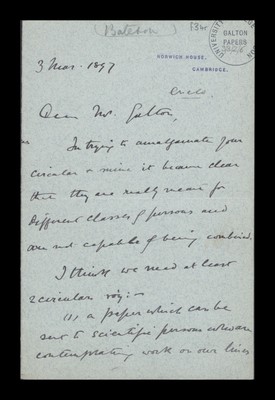 (Bateson)
UNIVERSITY
GALTON
PAPERS
NORWICH HOUSE,
CAMBRIDGE.
3 Mar. 1897
Encls
Dear Mr. Galton,
In trying to amalgamate your
circular & mine it became clear
that they are really meant for
different classes of persons and
are not capable of being combined.
I think we need at least
2 circulars viz: —
(1), a paper which can be
sent to scientific persons who are
contemplating work on our lines